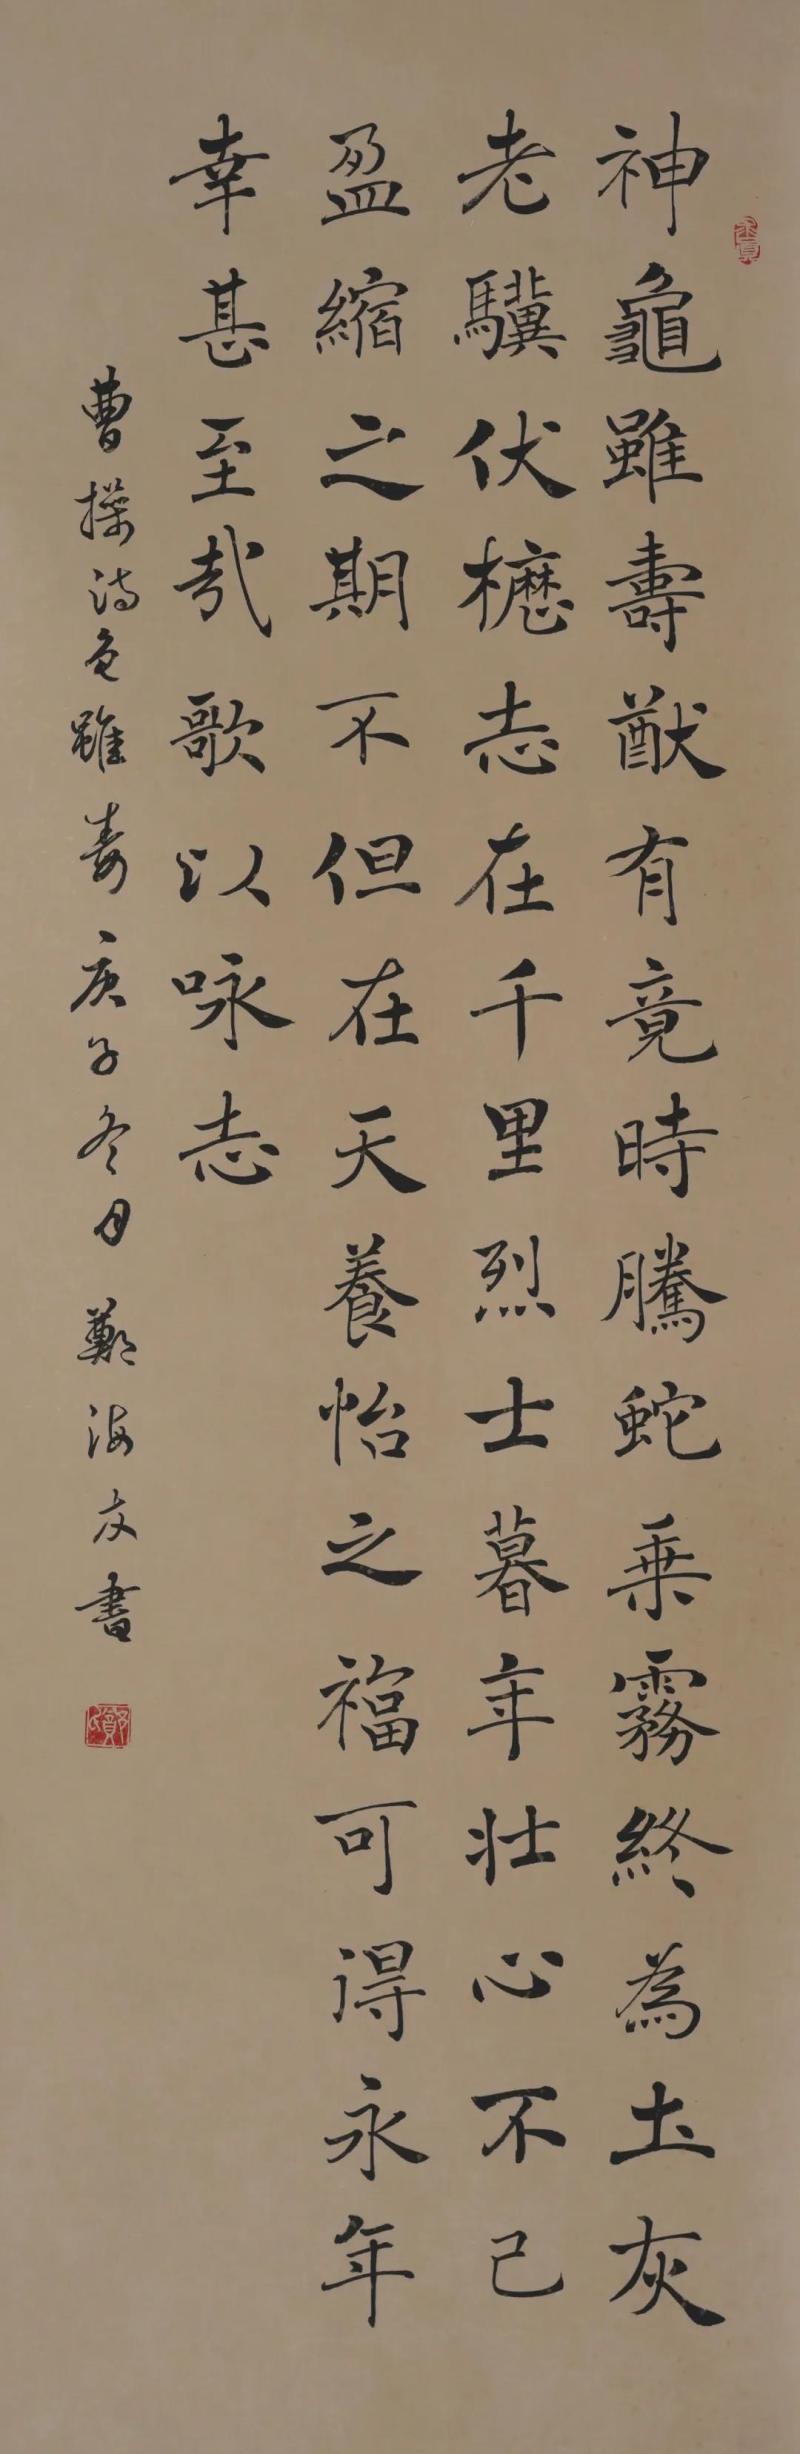 神龜雖壽猷有竟時騰蛇乗霧終為土灰
老驥伏櫪志在千里烈士暮年壯心不已
盈縮之期不但在天養怡之福可得永年
幸甚至哉歌以咏志
曹操詩龟雖寿庚子冬月鄭海友書